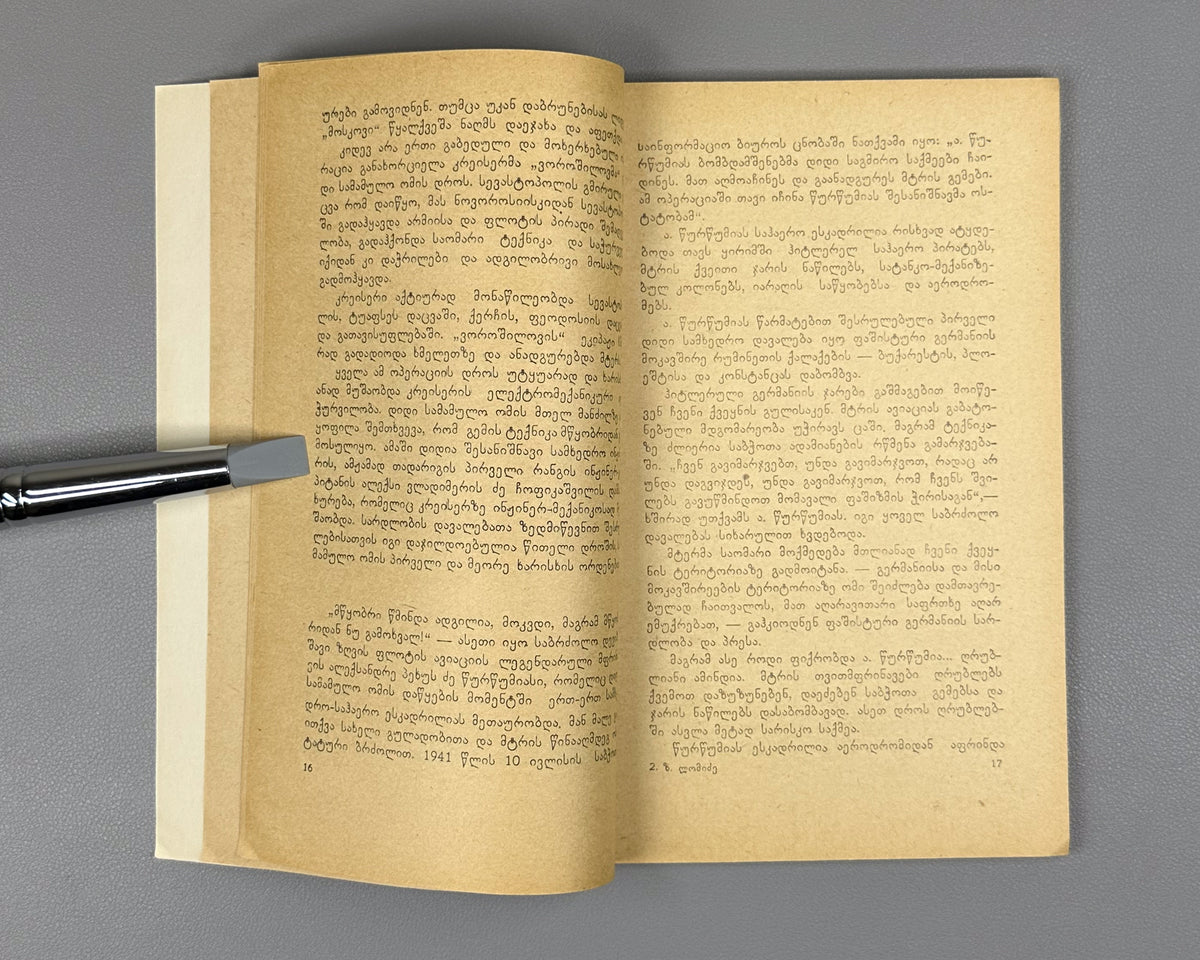 ურები გამოვიდნენ. თუმცა უკან დაბრუნებისას
„მოსკოვი“ წყალქვეშა ნაღმს დაეჯახა და
კიდევ არა ერთი გაბედული და მოხერხებული
რაცია განახორციელა კრეისერმა „ვოროშილოვმა“
დი სამამულო ომის დროს. სევასტოპოლის
ცვა რომ დაიწყო, მას ნოვოროსიისკიდან
ში გადაჰყავდა არმიისა და ფლოტის პირადი
ლობა, გადაჰქონდა საომარი ტექნიკა და
იქიდან კი დაჭრილები და ადგილობრივი
გადმოჰყავდა.
კრეისერი აქტიურად მონაწილეობდა
ლის, ტუაფსეს დაცვაში, ქერჩის, ფეოდოსიის
და გათავისუფლებაში. „ვოროშილოვის“ ეკიპაჟი
რად გადადიოდა ხმელეთზე და ანადგურებდა
ყველა ამ ოპერაციის დროს უტყუარად და
ანად მუშაობდა კრეისერის ელექტრომექანიკური
ჭურვილობა. დიდი სამამულო ომის მთელ მანძილზე
ყოფილა შემთხვევა, რომ გემის ტექნიკა მწყობრიდან
მოსულიყო. ამაში დიდია შესანიშნავი სამხედრო
რის, ამჟამად თადარიგის პირველი რანგის
პიტანის ალექსი ვლადიმერის ძე ჩოფიკაშვილის
ხურება, რომელიც კრეისერზე ინჟინერ-მექანიკოსად
შაობდა. სარდლობის დავალებათა ზედმიწევნით
ლებისათვის იგი დაჯილდოებულია წითელი დროშის,
მამულო ომის პირველი და მეორე ხარისხის
„მწყობრი წმინდა ადგილია, მოკვდი, მაგრამ
რიდან ნუ გამოხვალ!“ — ასეთი იყო საბრძოლო
შავი ზღვის ფლოტის ავიაციის ლეგენდარული
ვის ალექსანდრე პეხუს ძე წურწუმიასი, რომელიც
სამამულო ომის დაწყების მომენტში ერთ-ერთ
დრო-საჰაერო ესკადრილიას მეთაურობდა. მან მალე
ითქვა სახელი გულადობითა და მტრის წინააღმდეგ
ტატური ბრძოლით. 1941 წლის 10 ივლისის
16
საინფორმაციო ბიუროს ცნობაში ნათქვამი იყო: „ა. წუ-
რწუმიას ბომბდამშენებმა დიდი საგმირო საქმეები ჩაი-
დინეს. მათ აღმოაჩინეს და გაანადგურეს მტრის გემები.
ამ ოპერაციაში თავი იჩინა წურწუმიას შესანიშნავმა ოს-
ტატობამ“.
ა. წურწუმიას საჰაერო ესკადრილია რისხვად ატყდე-
ბოდა თავს ყირიმში ჰიტლერელ საჰაერო პირატებს,
მტრის ქვეითი ჯარის ნაწილებს, სატანკო-მექანიზე-
ბულ კოლონებს, იარაღის საწყობებსა და აეროდრო-
მებს.
ა. წურწუმიას წარმატებით შესრულებული პირველი
დიდი სამხედრო დავალება იყო ფაშისტური გერმანიის
მოკავშირე რუმინეთის ქალაქების — ბუქარესტის, პლო-
ეშტისა და კონსტანცას დაბომბვა.
ჰიტლერული გერმანიის ჯარები გაშმაგებით მოიწე-
ვენ ჩვენი ქვეყნის გულისაკენ. მტრის ავიაციას გაბატო-
ნებული მდგომარეობა უჭირავს ცაში, მაგრამ ტექნიკა-
ზე ძლიერია საბჭოთა ადამიანების რწმენა გამარჯვება-
ში. „ჩვენ გავიმარჯვებთ, უნდა გავიმარჯვოთ, რადაც არ
უნდა დაგვიჯდეს, უნდა გავიმარჯვოთ, რომ ჩვენს შვი-
ლებს გავუწმინდოთ მომავალი ფაშიზმის ჭირისაგან“,—
ხშირად უთქვამს ა. წურწუმიას. იგი ყოველ საბრძოლო
დავალებას სიხარულით ხვდებოდა.
მტერმა საომარი მოქმედება მთლიანად ჩვენი ქვეყ-
ნის ტერიტორიაზე გადმოიტანა. — გერმანიისა და მისი
მოკავშირეების ტერიტორიაზე ომი შეიძლება დამთავრე-
ბულად ჩაითვალოს, მათ აღარავითარი საფრთხე აღარ
ემუქრებათ, — გაჰკიოდნენ ფაშისტური გერმანიის სარ-
დლობა და პრესა.
მაგრამ ასე როდი ფიქრობდა ა. წურწუმია... ღრუბ-
ლიანი ამინდია. მტრის თვითმფრინავები ღრუბლებს
ქვემოთ დაზუზუნებენ, დაეძებენ საბჭოთა გემებსა და
ჯარის ნაწილებს დასაბომბავად. ასეთ დროს ღრუბლებ-
ში ასვლა მეტად სარისკო საქმეა.
წურწუმიას ესკადრილია აეროდრომიდან აფრინდა
2. ზ. ლომიძე
17